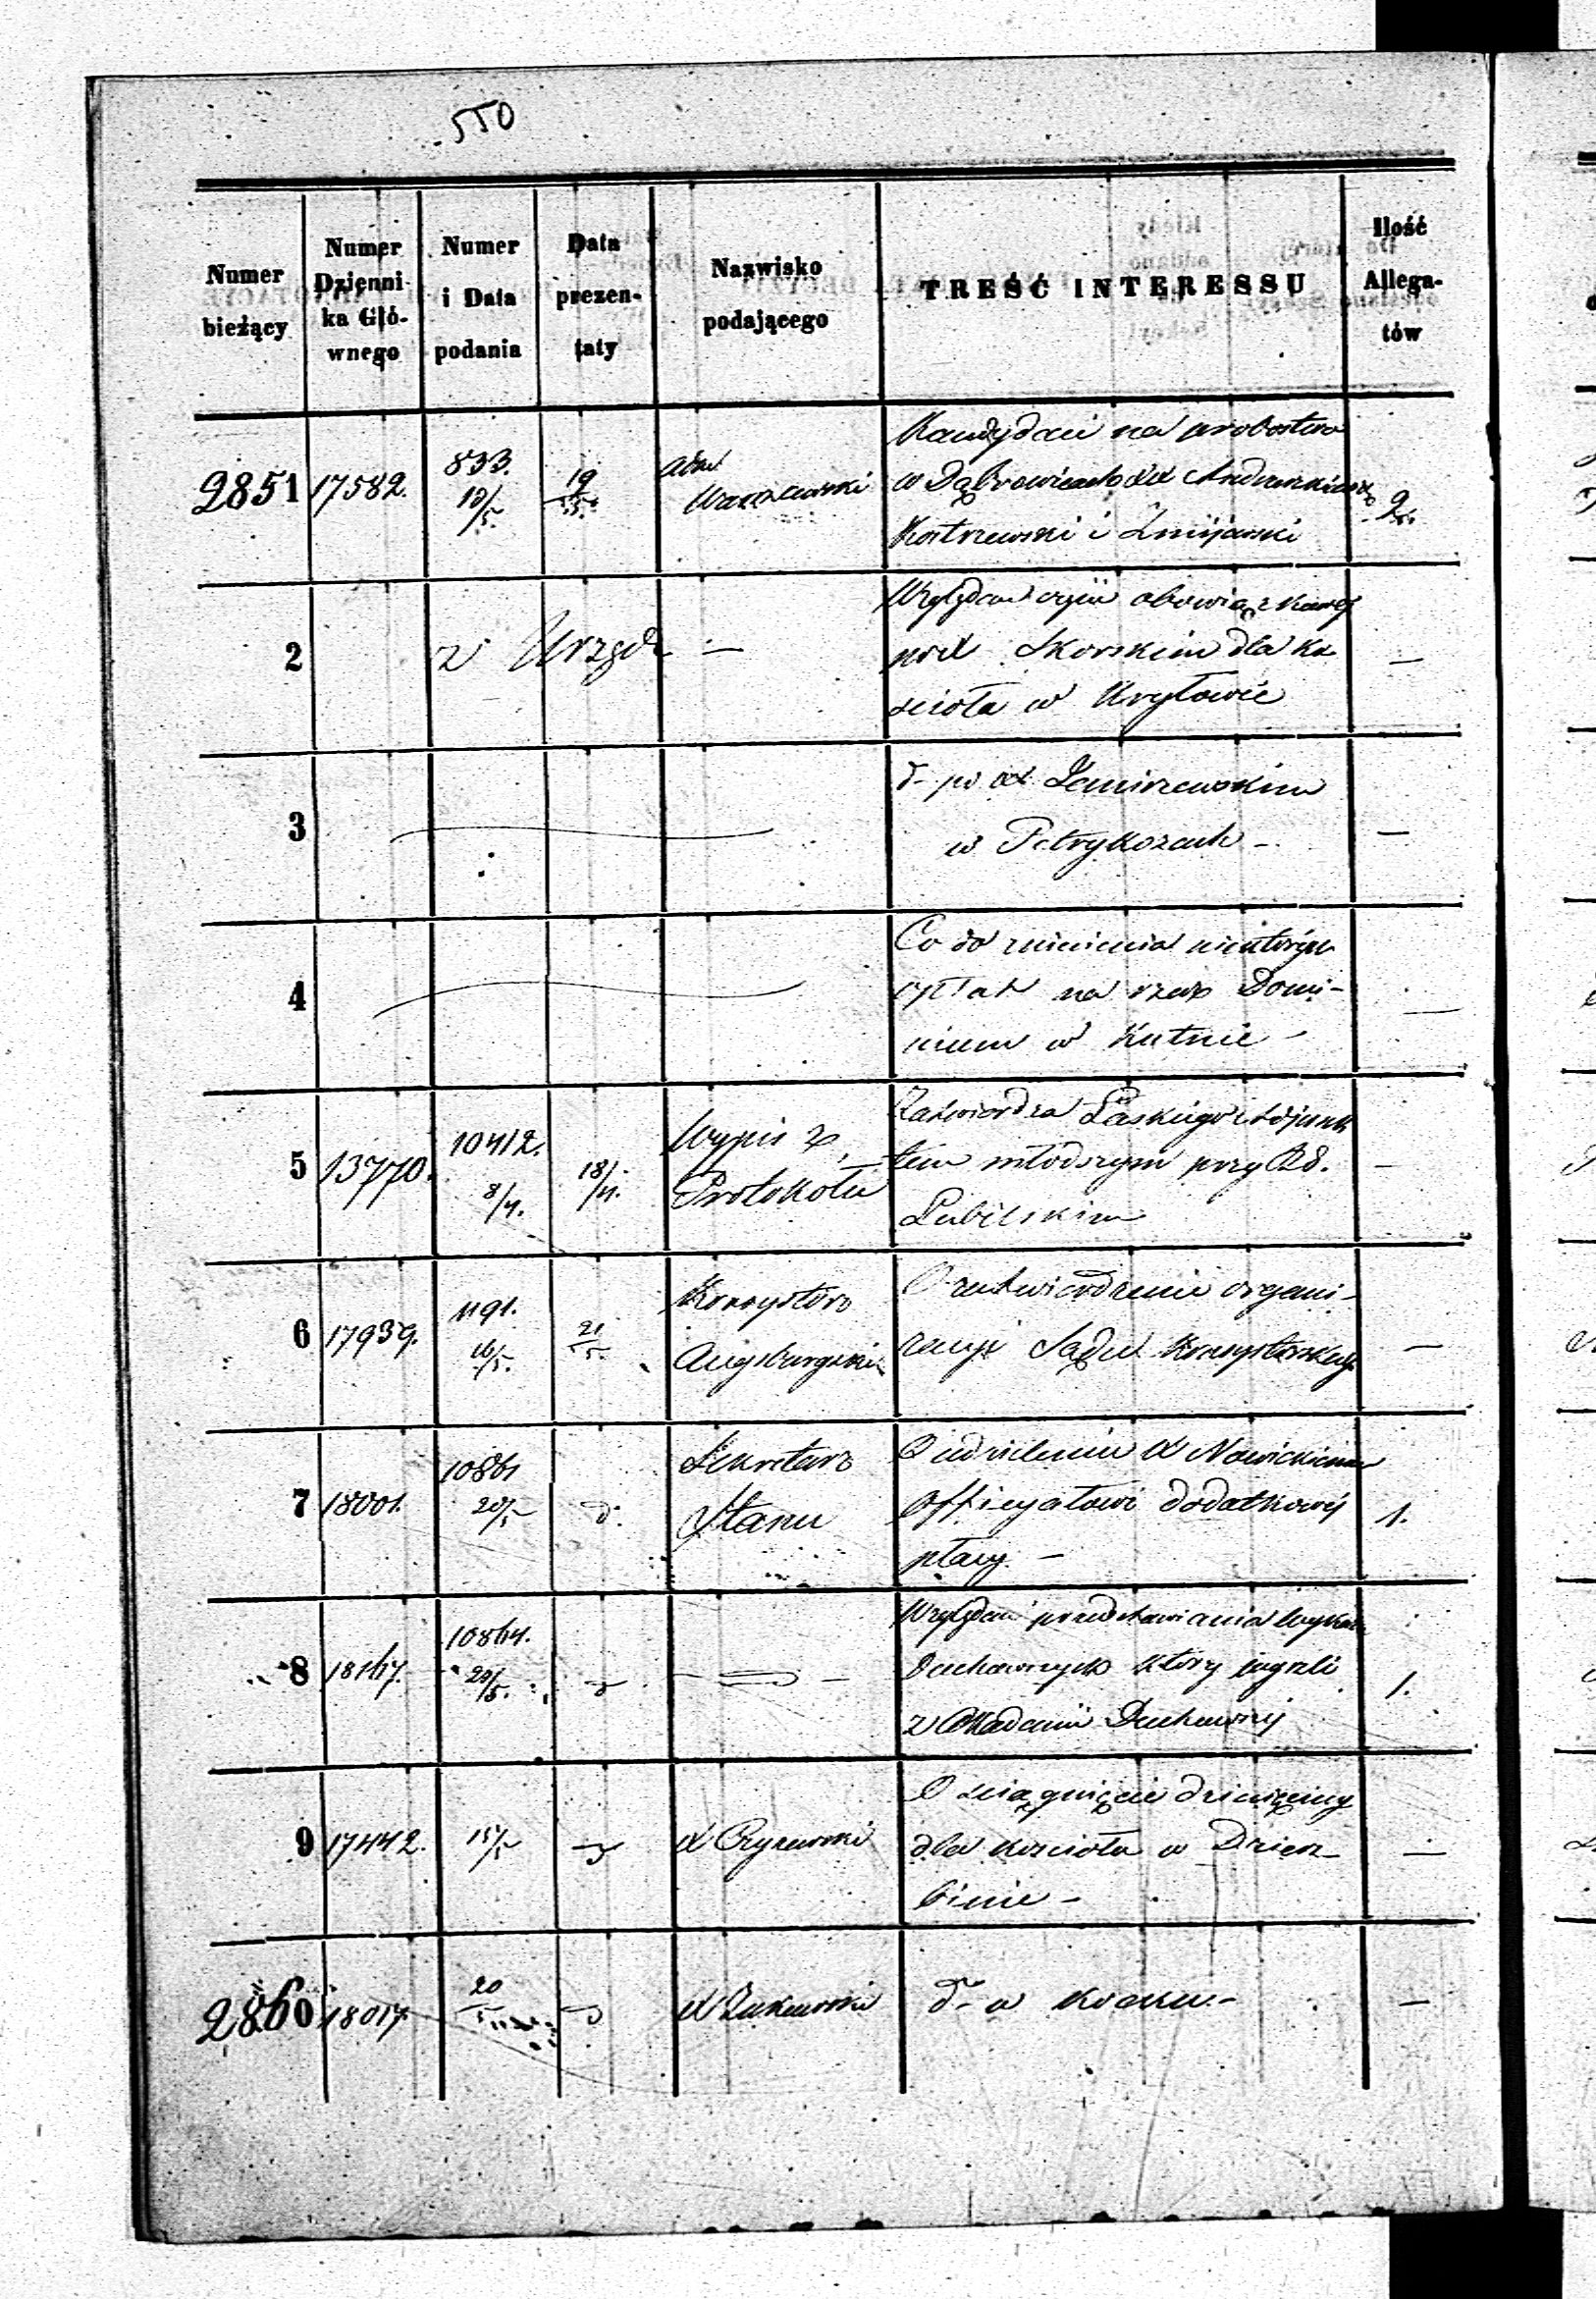 550
Numer bieżący
Numer Dzienni- ka Głó- wnego
Numer i Data podania
Data prezen- taty
Nazwisko podającego
TREŚĆ INTERESSU
Ilość Allega- tów
2851 17582. 833. 18/5. 19/5. Adm Warszawski
Kandydaci na probostwo
w Dąbrowicach XX
Kostrzewski i Żmijewski
2.
2 z Urzęd —
Względem obowiązkowej
po X Skorskim dla ko
scioła w Kryłowie
—
3
d- po X
w Petrykozach —
—
4
Co do
opłat na rzecz Domi-
nium w Kutnie —
—
5 13770. 10412. 8/4. 18/4. Wypis z Protokołu
Zatwierdza Laskiego Adjunk
tem młodszym przy Rd.
Lubelskim
—
6 17939. 1191. 16/5. 21/5. Konsystorz Augsburgski
O zatwierdzenie organi-
zacyi Sądu Konsystorskiego
—
7 18001. 10861 20/5 d. Sekretarz Stanu
O udzielenie X Nowickiemu
Officyałowi dodatkowej
płacy. —
1.
8 18167. 10864. 20/5. d —
Względem przedstawiania
Duchownych którzy
z Akademii Duchownej
1.
9 17442. 15/5 d X
O sciągnięcie dziesięciny
dla kościoła w Dzierz-
binie —
—
2860 18017. 20/5 d X Żukowski
d- w Kocku. —
—